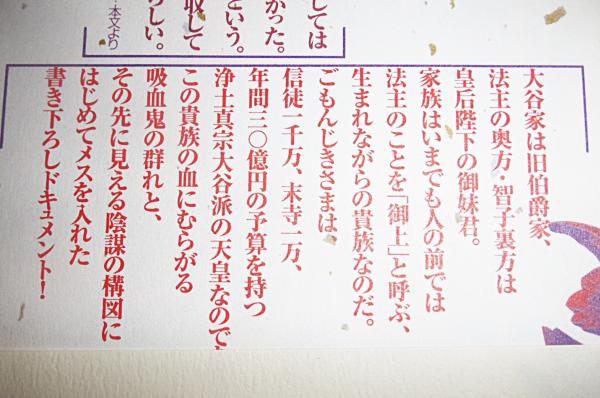 大谷家は旧伯爵家、
法主の奥方・智子裏方は
皇后陛下の御妹君。
家族はいまでも人の前では
法主のことを「御上」と呼ぶ、
生まれながらの貴族なのだ。
ごもんじきさまは、
信徒一千万、末寺一万、
年間三〇億円の予算を持つ
浄土真宗大谷派の天皇なので
この貴族の血にむらがる
吸血鬼の群れと、
その先に見える陰謀の構図に
はじめてメスを入れた
書き下ろしドキュメント！
しては
かった。
という。
収して
らしい。
本文より